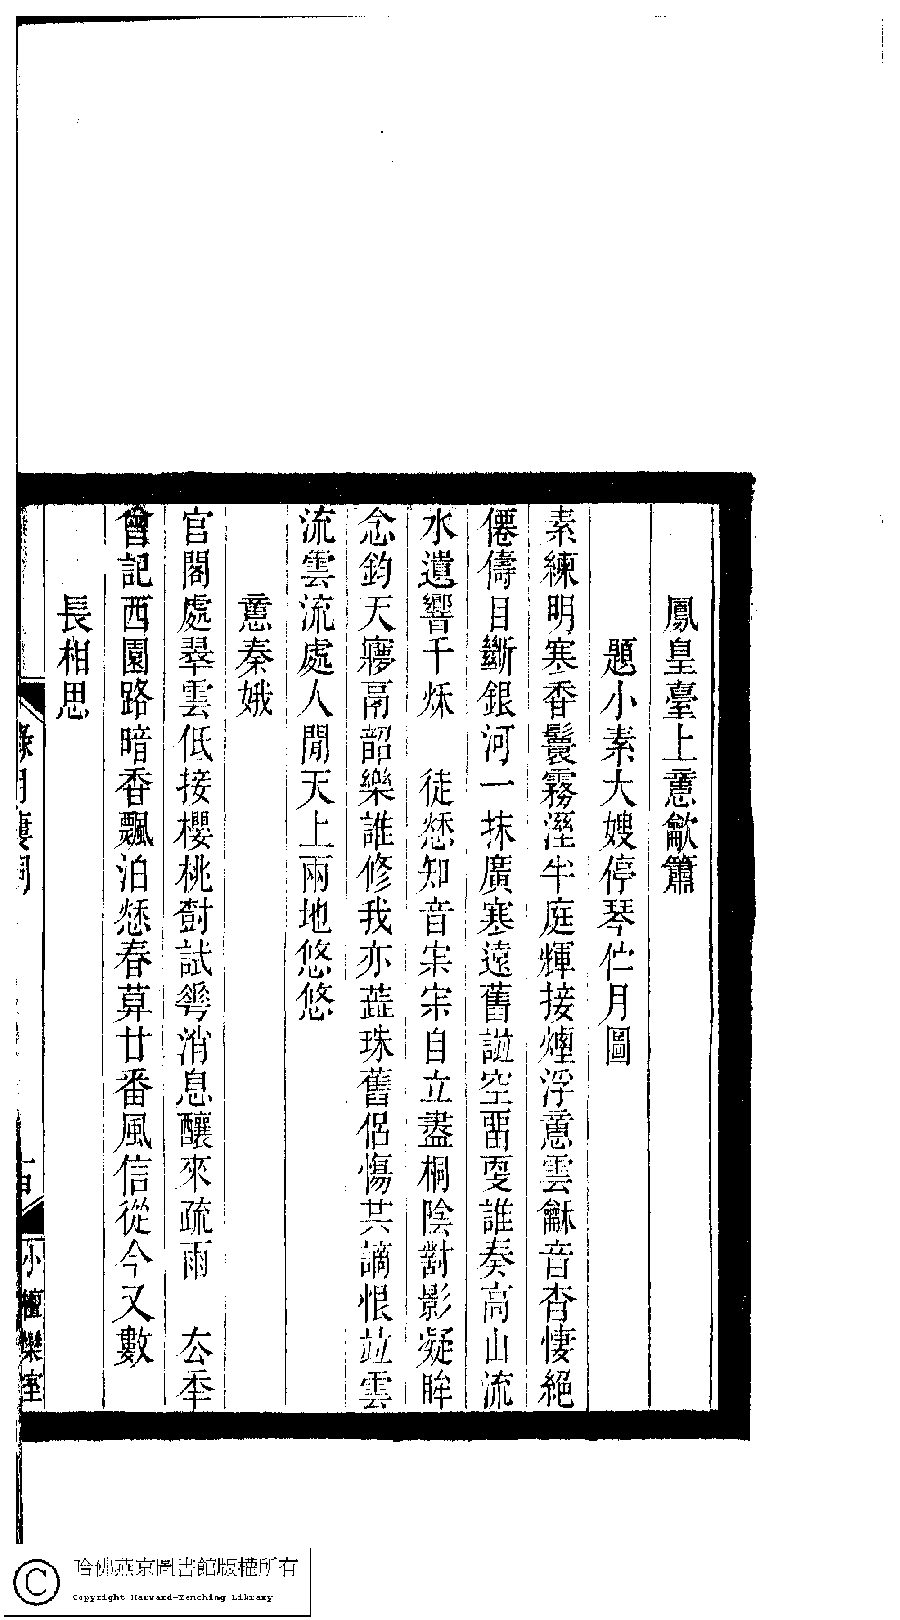 鳳皇臺上憶龡簫
題小素大嫂停琴伫月圖
素練明寒香鬟霧溼半庭輝接煙浮意雲龢音杳悽絕
僊儔目斷銀河一抹廣寒遠舊誕空畱更誰奏高山流
水遺響千秌　徒愁知音寀寀自立盡桐陰對影凝眸
念鈞天㝱鬲韶樂誰修我亦蕋珠舊侶傷共謫恨竝雲
流雲流處人閒天上兩地悠悠
憶秦娥
官閣處翠雲低接櫻桃尌試䔢消息釀來疏雨　厺秊
曾記西園路暗香飄泊愁春莫廿番風信從今又數
長相思
小檀欒室
哈佛燕京圖書館版權所有
Copyright Harvard-Yenching Library